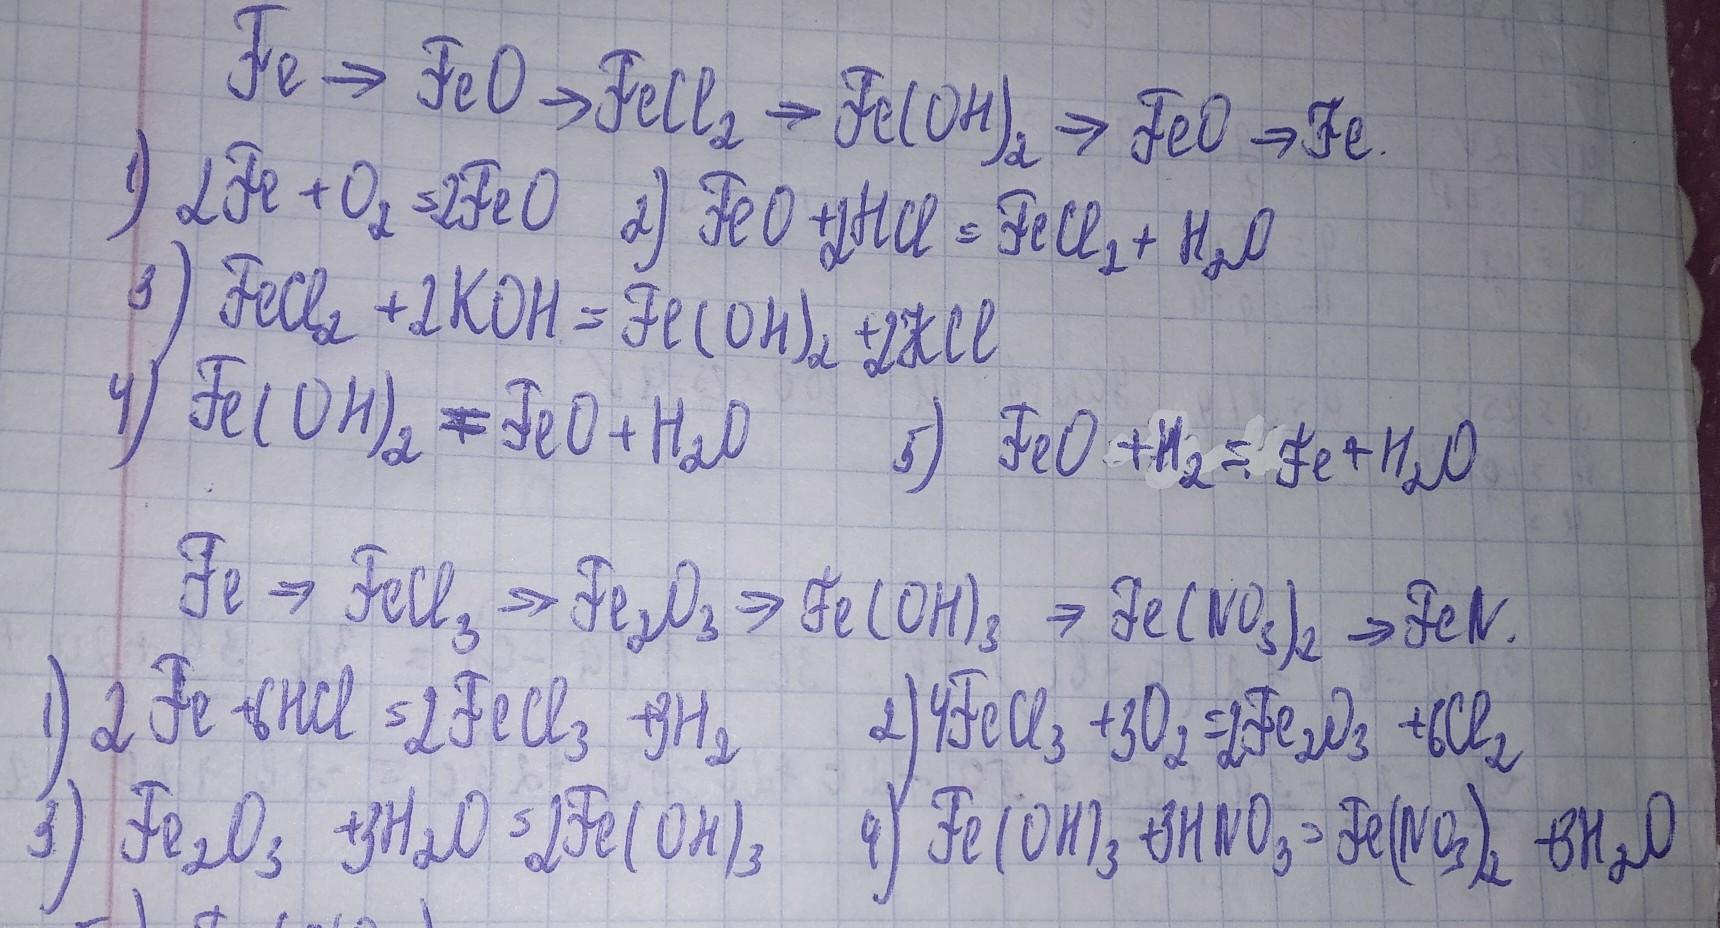 Fe → FeO → FeCl₂ → Fe(OH)₂ → FeO → Fe.
1) 2Fe + O₂ = 2FeO 2) FeO + 2HCl = FeCl₂ + H₂O
3) FeCl₂ + 2KOH = Fe(OH)₂ + 2KCl
4) Fe(OH)₂ = FeO + H₂O 5) FeO + H₂ = Fe + H₂O
Fe → FeCl₃ → Fe₂O₃ → Fe(OH)₃ → Fe(NO₃)₂ → FeN.
1) 2Fe + 6HCl = 2FeCl₃ + 3H₂ 2) 4FeCl₃ + 3O₂ = 2Fe₂O₃ + 6Cl₂
3) Fe₂O₃ + 3H₂O = 2Fe(OH)₃ 4) Fe(OH)₃ + 3HNO₃ = Fe(NO₃)₂ + 3H₂O